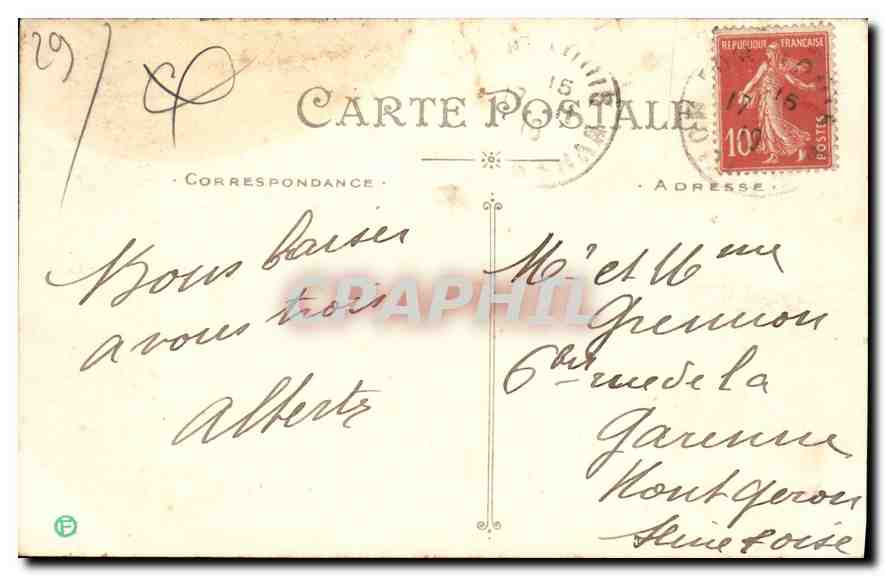 29
CARTE POSTALE
CORRESPONDANCE
ADRESSE
REPUBLIQUE FRANÇAISE
10c
POSTES
15
15
Bons baiser
a vous trois
Albert
Mr et Mme
Grennon
6 bis rue de la
Garenne
Montgeron
Seine & oise
CPAPHIL
F